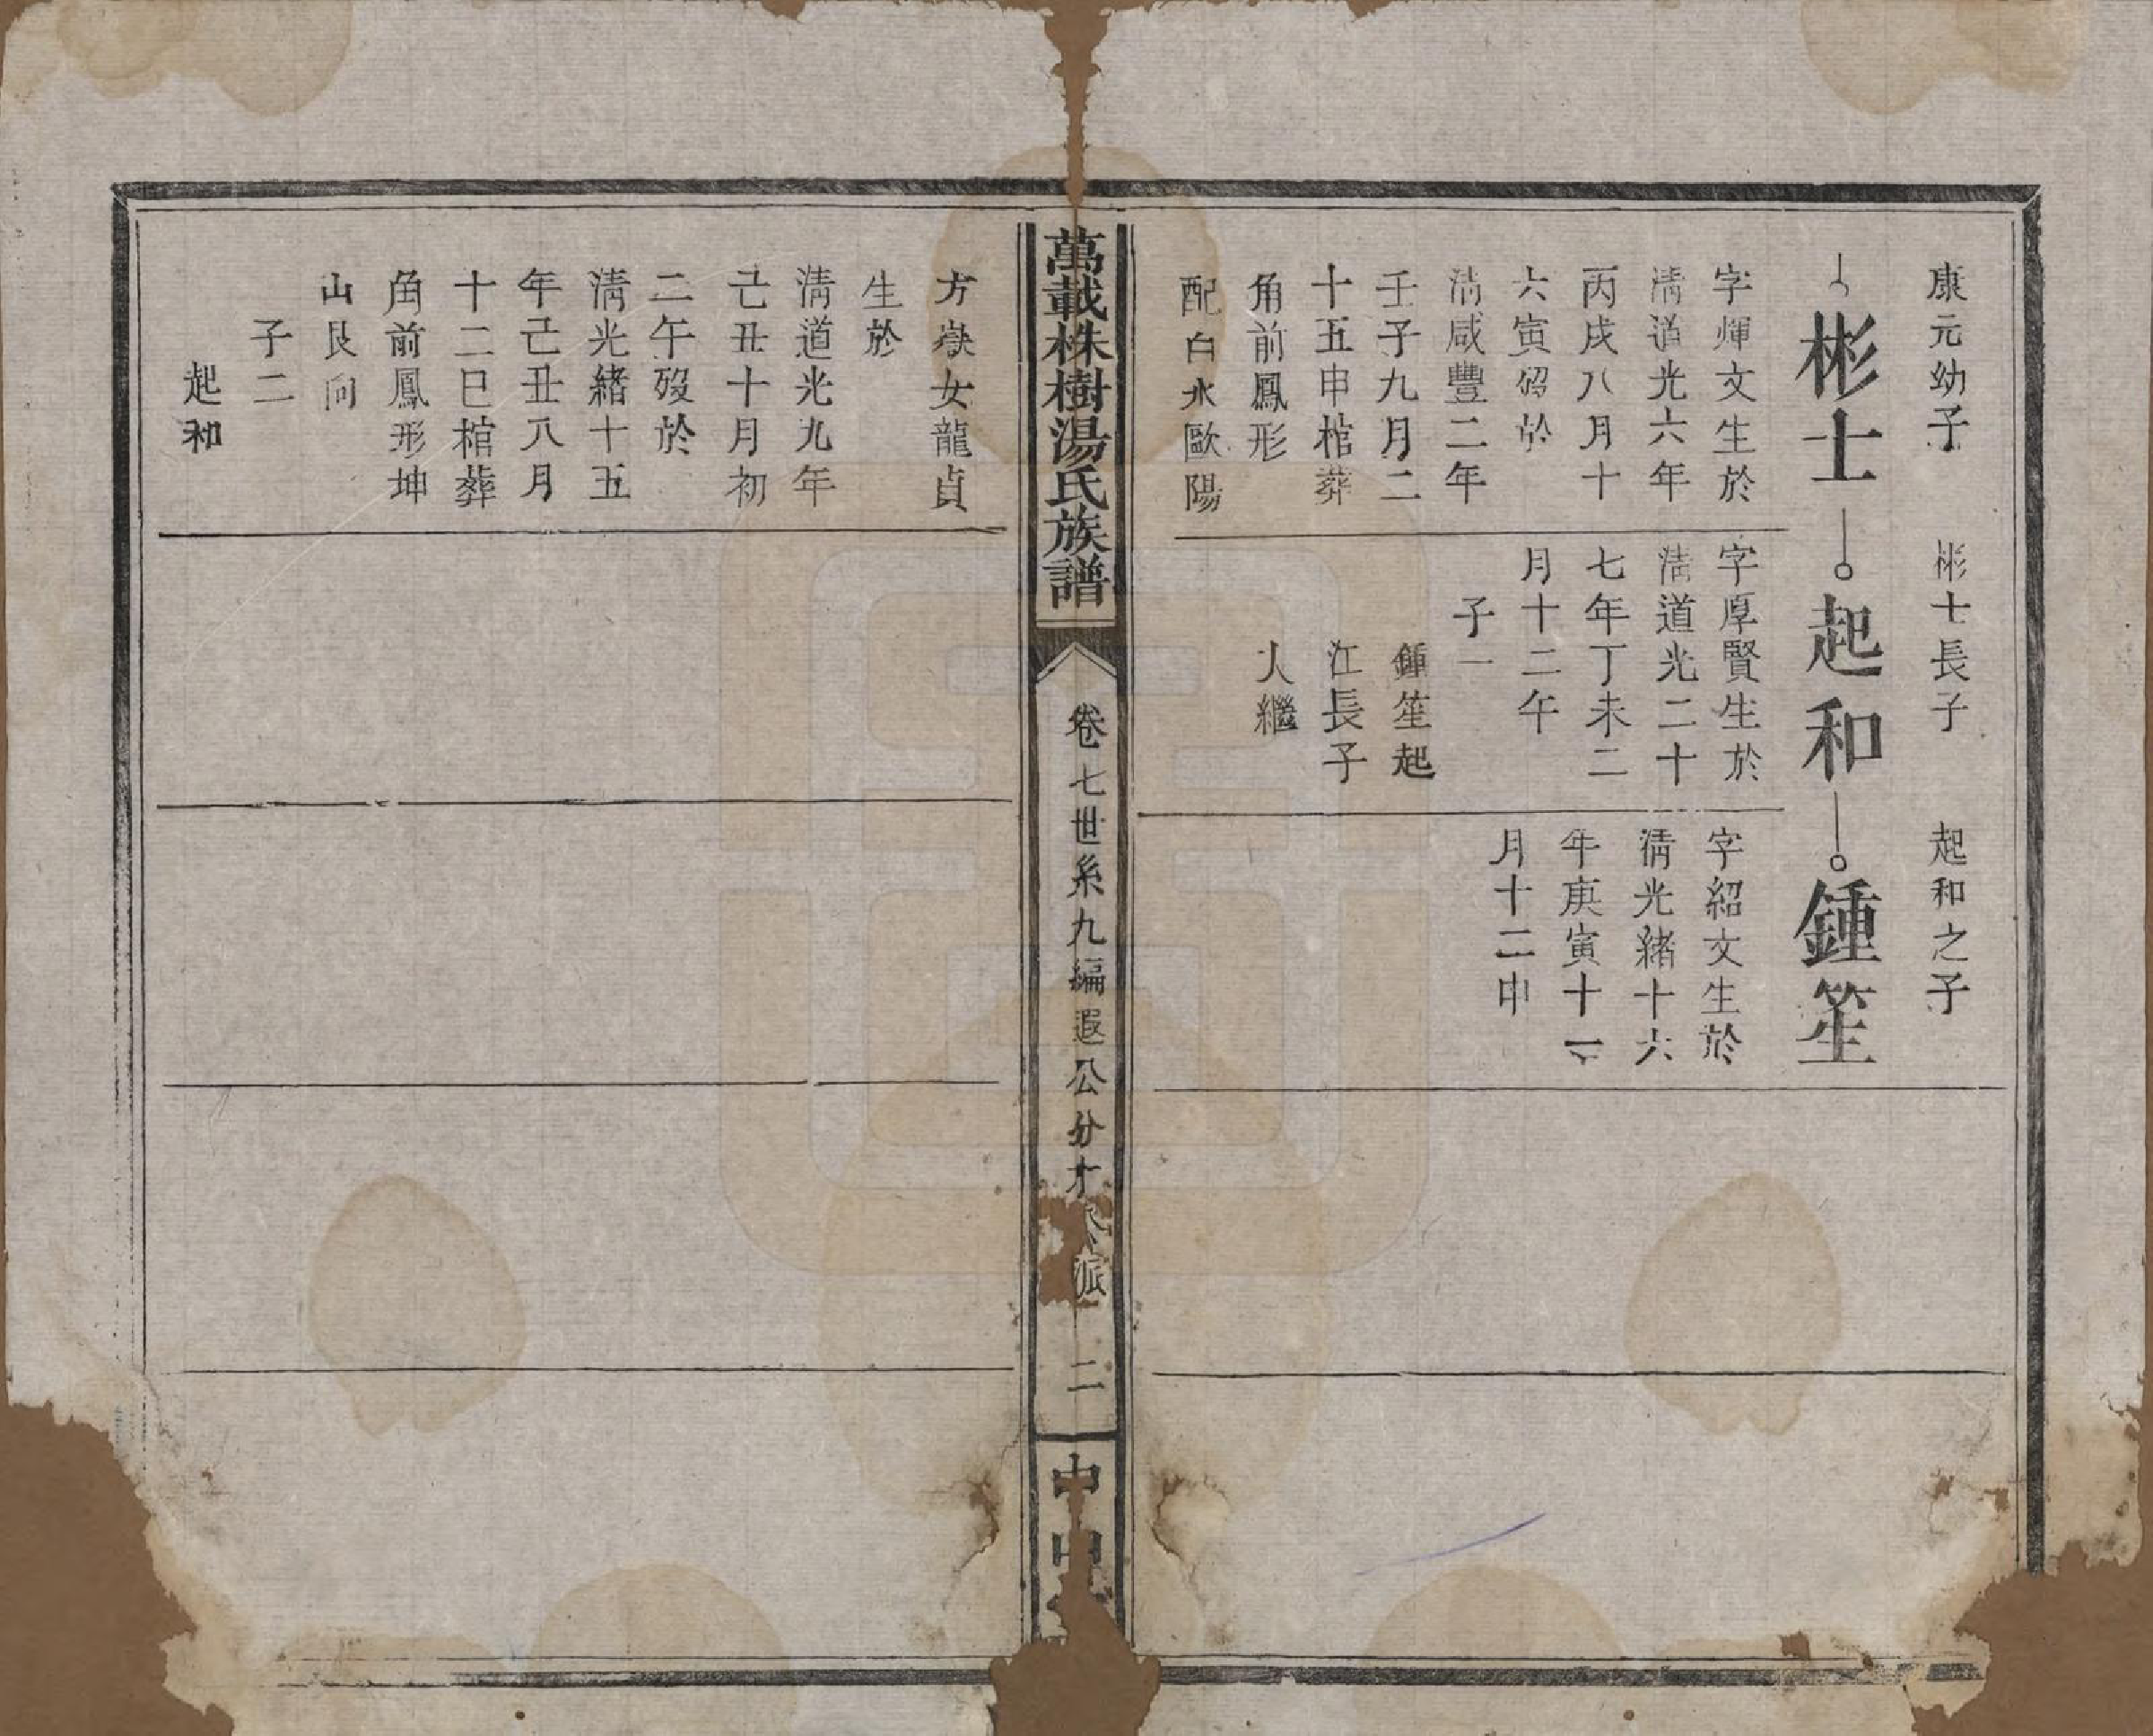 康元幼子
彬士
字煇文生於
淸道光六年
丙戌八月十
六寅歿於
淸咸豐二年
壬子九月二
十五申棺葬
角前鳳形
配白水歐陽
彬士長子
起和
字厚賢生於
淸道光二十
七年丁未二
月十二午
子一
鍾笙起
江長子
入繼
起和之子
鍾笙
字紹文生於
淸光緒十六
年庚寅十一
月十二申
萬載株樹湯氏族譜
卷七世系九編遐公分才公派
二
中
方嶽女龍貞
生於
淸道光九年
己丑十月初
二午歿於
淸光緒十五
年己丑八月
十二巳棺葬
角前鳳形坤
山艮向
子二
起和